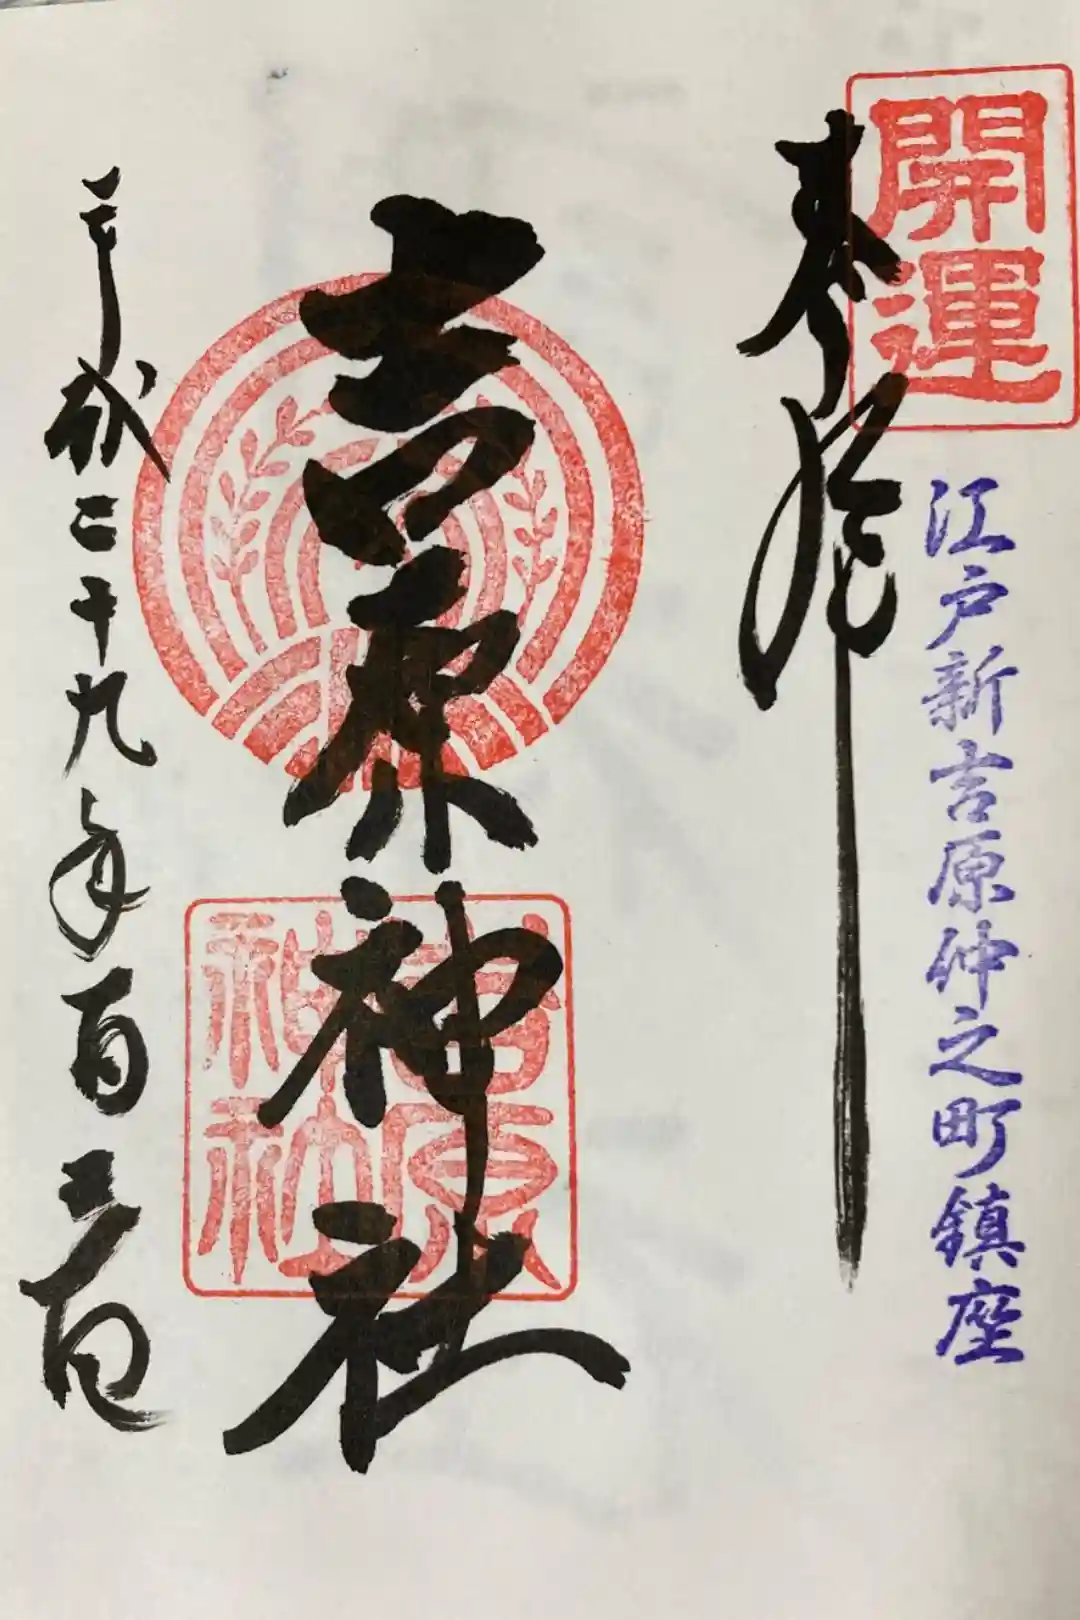 開運
奉拝
江戸新吉原仲之町鎮座
吉原神社
吉原神社
平成二十九年一月三日